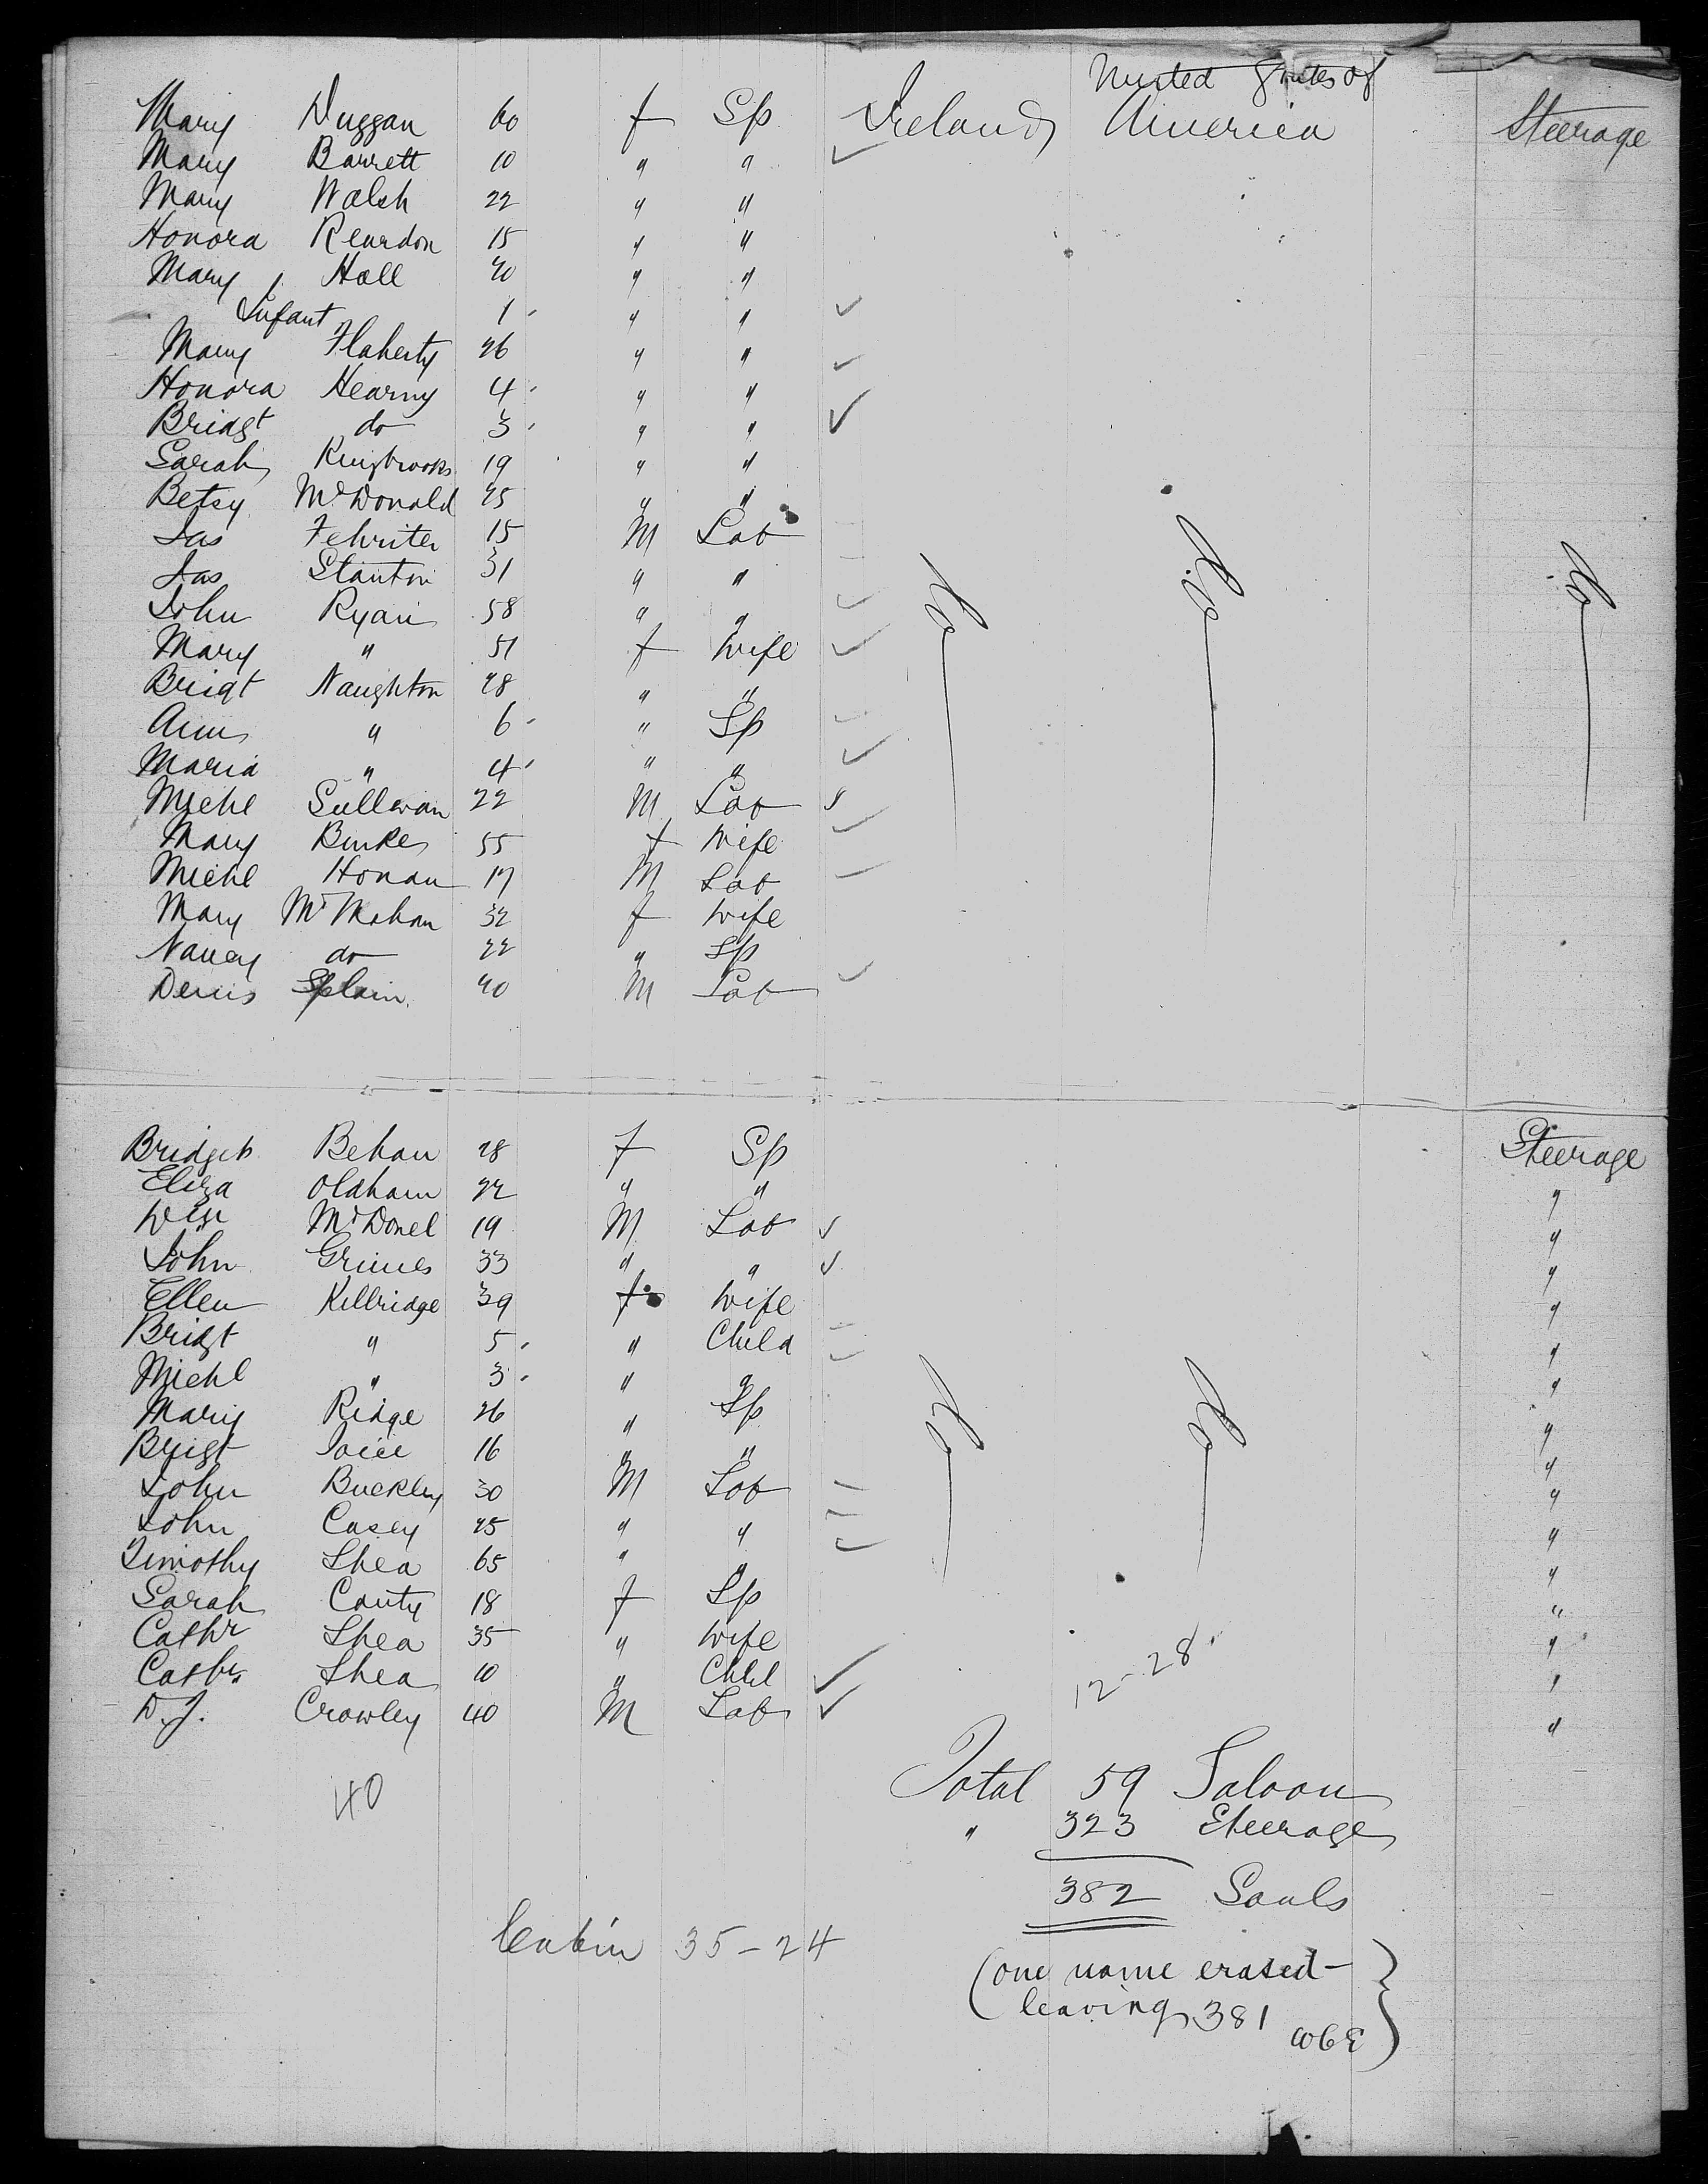 United States of
Mary Duggan 60 f Sp Ireland America Steerage
Mary Barrett 10 " "
Mary Walsh 22 " "
Honora Reardon 15 " "
Mary Hall 40 " "
Infant 1 " "
Mary Flaherty 26 " "
Honora Hearny 4 " "
Bridgt do 3 " "
Sarah 19 " "
Betsy McDonald 45 " "
Jas Fehriter 15 M Lab
Jas Stanton 31 " "
John Ryan 58 " "
Mary " 51 f Wife
Bridgt Naughton 48 " "
Ann " 6 " Sp
Maria " 4 " "
Michl Sullivan 22 M Lab
Mary Burke 55 f Wife
Michl Honan 17 M Lab
Mary McMahon 32 f Wife
Nancy do 22 " Sp
Denis Splain 40 M Lab
Do Do Do
Bridget Behan 28 f Sp Steerage
Eliza Oldham 22 " " "
Wm McDonel 19 M Lab "
John Grimes 33 " " "
Ellen Killridge 39 f Wife "
Bridgt " 5 " Child "
Michl " 3 " " "
Mary Ridge 26 " Sp "
Bridgt Joice 16 " " "
John Buckley 30 M Lab "
John Casey 45 " " "
Timothy Shea 65 " " "
Sarah Canty 18 f Sp "
Cathr Shea 35 " Wife "
Cathr Shea 10 " Chld "
D. J. Crowley 40 M Lab "
Do Do
12-28
40
Total 59 Saloon
" 323 Steerage
382 Souls
Cabin 35-24
(one name erased-
leaving 381